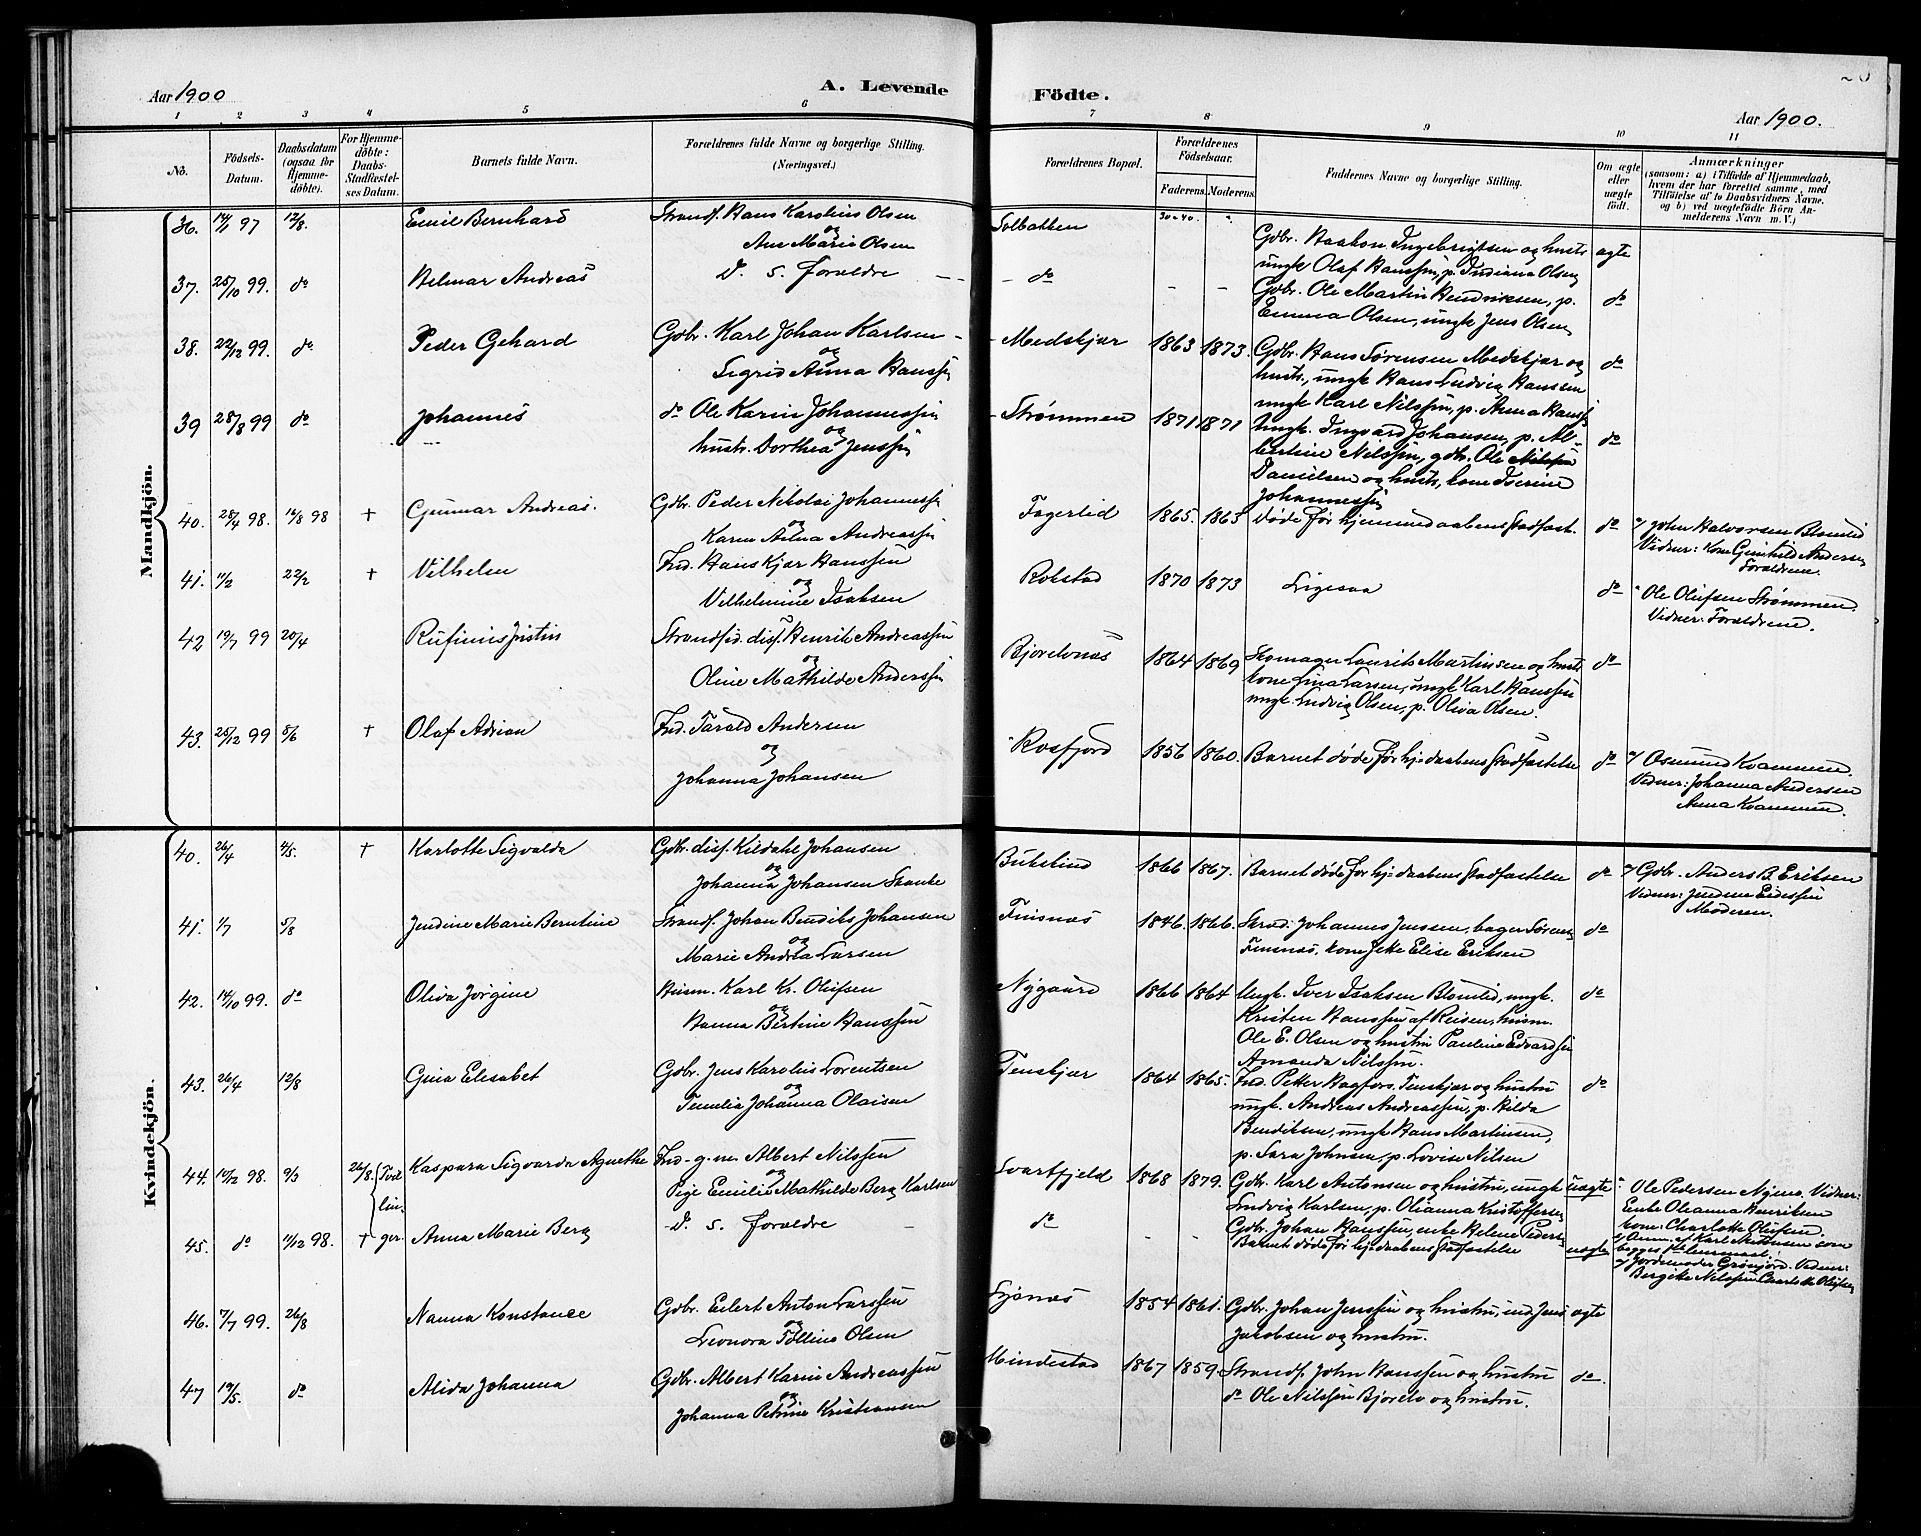 Aar 1900
A. Levende
Födte.
Aar 1900.
1 2 3 4 5 6 7 8 9 10 11
No.
Födsels-Datum.
Daabsdatum (ogsaa for Hjemme-döbte).
For Hjemme-döbte: Daabs-Stadfæstel-ses Datum.
Barnets fulde Navn.
Forældrenes fulde Navne og borgerlige Stilling. (Næringsvei.)
Forældrenes Bopæl.
Forældrenes Födselsaar.
Faderens. Moderens.
Faddernes Navne og borgerlige Stilling.
Om ægte eller uægte födt.
Anmærkninger
(saasom: a) i Tilfælde af Hjemmedaab, hvem der har forrettet samme, med Tilföielse af to Daabsvidners Navne, og b) ved uægtefödte Börn An-melderens Navn m. V.)
Mandkjön.
36. 14/1 97 12/8. Emil Bernhard Strands. Hans Karolius Olsen Solbakken 30-40.
og
Ane Marie Olsen
Gdbr. Haakon Ingebrigtsen og hustr. ægte
ungk Olaf Hanssen, p. Indiana Olsen
37. 25/10 99. do Helmar Andreas D. s. forældre - do - -
Gdbr. Ole Martin Hendriksen, p. do
Emma Olsen, ungk Jens Olsen
38. 22/12 99. do Peder Gehard Gdbr. Karl Johan Karlsen Medskjær 1863 1873.
og
Sigrid Anna Hanssen
Gdbr. Hans Sørensen Medskjær og do
hustr., ungk Hans Ludvig Hanssen
ungk Karl Nilssen, p. Anna Hanss
39 28/8 99 do Johannes do Ole Karin Johannessen Strømmen 1871 1871
og
hustr. Dorthea Jenssen
Ungk. Ingvard Johansen, p. Al- do
bertine Nilssen, gdbr. Ole
Danielsen og hustr, kone Severine
Johannessen
40. 28/4 98. 14/8 98 † Gunnar Andreas. Gdbr. Peder Nikolai Johannessen Fagerlid 1865. 1863
og
Karen Anna Andreassen
Døde før hjemmedaabens Stadfæst. do
John Halvorsen Blomlid
Vidner: Kone Gunhild Anders
Forældrene.
41. 11/2 22/2 † Vilhelm Ind. Hans Kjær Hanssen Rokstad 1870 1873 Ligesaa do
og
Vilhelmine Isaksen
Ole Olufsen Strømmen
Vidner: Forældrene.
42 19/7 99 20/4 Rufinus Justin Strandsid. disp. Henrik Andreassen Bjorelvnæs 1864 1869
og
Oline Mathilde Anderssen
Skomager Laurits Martinsen og hust do
kone Lina Larsen, ungk Karl Hanssen
ungk. Ludvig Olsen, p. Oliva Olsen.
43. 25/12 99 5/6 † Olaf Adrian Ind. Tarald Andersen Rossfjord 1856 1860. Barnet døde før hjedaabens Stadfæstelse do
og
Johanna Johansen
Osmund Kvammen.
Vidner: Johanna Andersen
Anna Kvammen
Kvindekjön.
40. 26/4 4/5. † Karlotte Sigvalda Gdbr. disp. Kildahl Johansen Bukskind 1866 1867. Barnet døde før hjedaabens Stadfæstelse do
og
Johanna Johansen Skanke
Gdbr. Anders B. Eriksen
Vidner:
Moderen.
41. 1/7 5/8 Jendine Marie Berntine Strands. Johan Bendiks Johansen Finsnæs 1846. 1866.
og
Marie Andrea Larsen
Skræd. Johannes Jenssen, bager Søren do
Finsnæs, kone Jette Elise Eriksen
42. 14/10 99. do Oliva Jørgine Husm. Karl Kr. Olufsen Nygaard 1866 1864
og
Hanna Bertine Hanssen
Ungk. Iver Isaksen Blomlid, ungk. do
Kristen Hanssen af Reisen, husm.
Ole E. Olsen og hustru Pauline Edvardsen
Amanda Nilssen.
43. 26/4 12/8 Gina Elisabet Gdbr. Jens Karolius Lorentsen Tenskjær 1864 1865.
og
Johanna Olaisen
Ind. Petter Hagfors, Tenskjær og hustru do
ungk. Andreas Andreassen, p. Hilda
Bendiksen, ungk Hans Martinsen,
p. Sara Johnsen, p. Lovise Nilsen
44. 10/12 98. 9/3 26/8. Tvil- Kaspara Sigvarda Agnethe Ind-g.m. Albert Nilssen Svartfjeld 1868 1879.
og
lin- Pige Emilie Mathilde Berg Karlsen
Gdbr. Karl Antonsen og hustru, ungk uægte
Ludvig Karlsen, p. Olianna Kristoffersen
Gdbr. Johan Hanssen, enke Helene Peders
Ole Pedersen Nymo. Vidner:
Enke Oleanna Henriksen
kone: Charlotte Olufsen.
45. do 11/12 98. † ger Anna Marie Berg D. s. forældre do - -
Barnet døde før hjedaabens Stadfæstelse uægte
Jordemoder Grønjord. Vidner:
Bergitte Nilssen Charlotte Olufsen
46. 7/7 99. 26/8 Nanna Konstance Gdbr. Eilert Anton Larssen 1854 1861.
og
Leonora Olsen
Gdbr. Johan Jenssen og hustru, ind Jens ægte
Jakobsen og hustru.
47 19/5. do Alida Johanna Gdbr. Albert Karin Andreassen Mindestad 1867 1859
og
Johanna Petrine Kristiansen
Strands. John Hanssen og hustru do.
do Ole Nilssen Bjorelv og hustru.